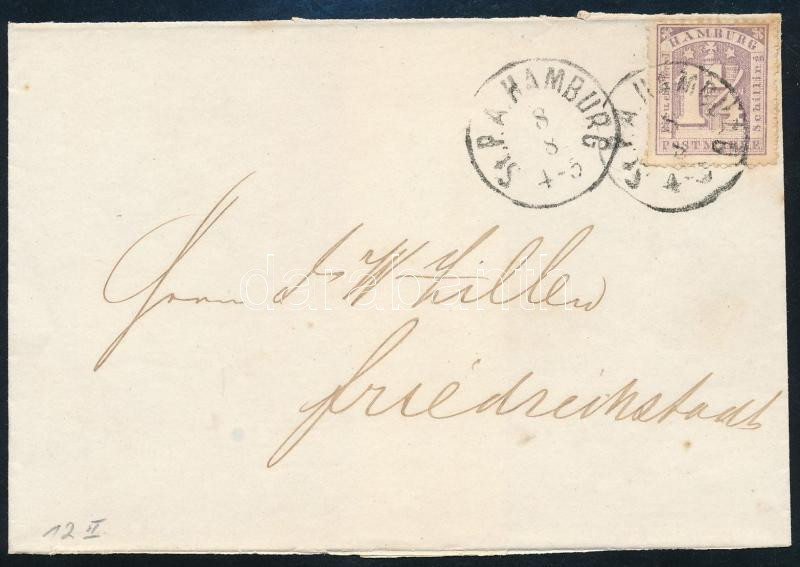 HAMBURG
1¼
Schilling
POSTMARKE
St.P.A. HAMBURG
8
8
4-5
St.P.A. HAMBURG
8
4-5
Herrn W Zillen
Friedrichstadt
darabanth
12 II